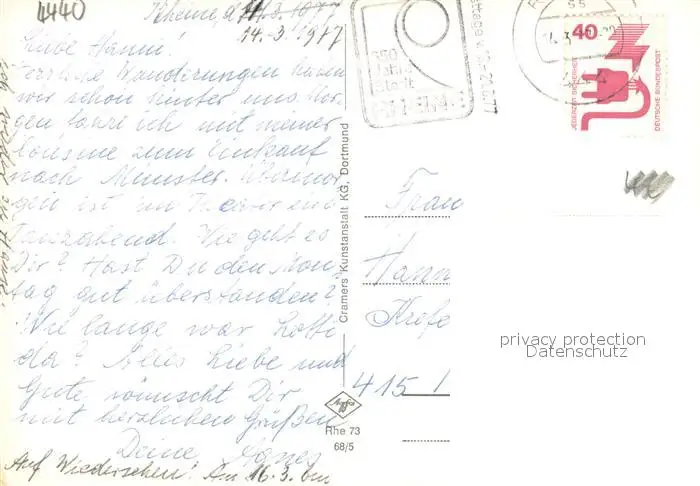 4440
Rheine d. 14.3.1977
14.-3.1977
Liebe Hanni!
Wanderungen haben
wir schon hinter uns. Mor-
gen fahre ich mit meiner
Cousine zum Einkauf
nach Münster. Übermor-
gen ist im Theater ein
Tanzabend. Wie geht es
Dir? Hast Du den Mon-
tag gut überstanden?
Wie lange war Lotti
da? Alles Liebe und
Gute wünscht Dir
mit herzlichen Grüßen
Deine Agnes
Auf Wiedersehen! Am 16.3. bin
ich wieder zu Hause.
Cramers Kunstanstalt KG, Dortmund
Agfa
Rhe 73
68/5
650
Jahre
Stadt
40
JEDERZEIT SICHERHEIT
DEUTSCHE BUNDESPOST
Frau
Hann
Krefe
415 1
privacy protection
Datenschutz